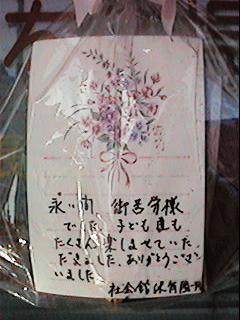 永い間 御苦労様
でした。子ども達も
たくさん楽しませていた
だきました。ありがとうござ
いました。
社会館保育園一同